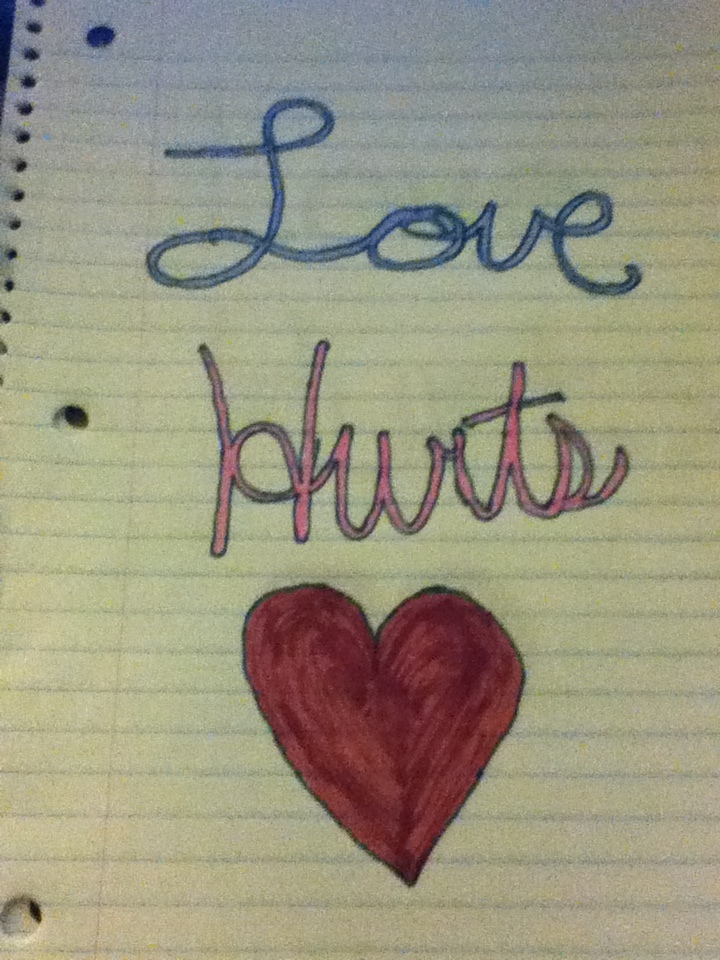 Love
Hurts